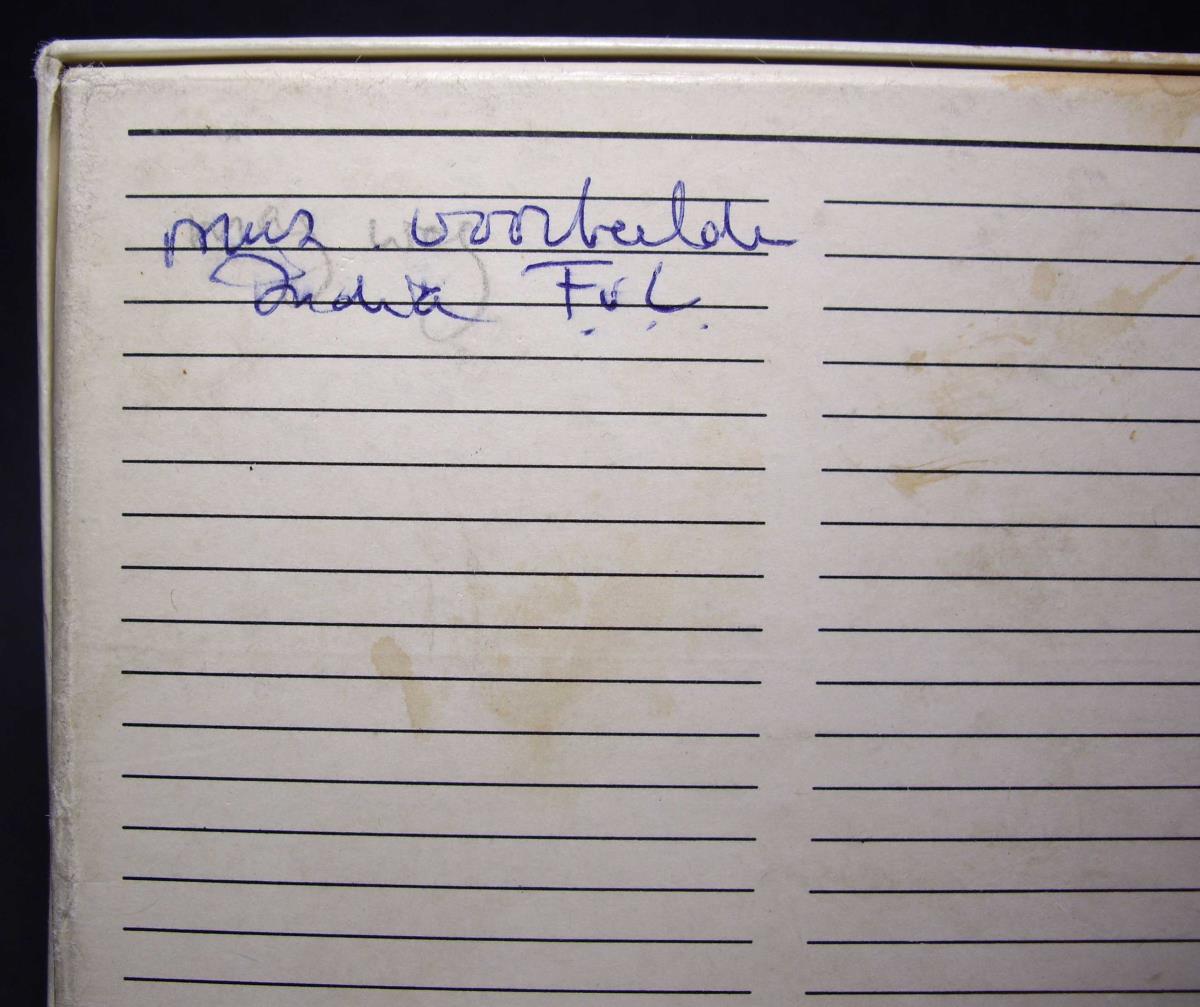 muz voorbeelden
India F.v.L.